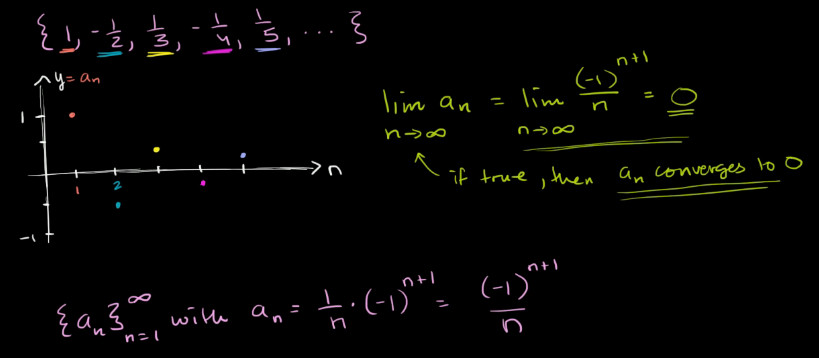 {1, -1/2, 1/3, -1/4, 1/5, ...}
y = aₙ
1
1 2
n
-1
lim n→∞ aₙ = lim n→∞ (-1)ⁿ⁺¹/n = 0
if true, then aₙ converges to 0
{aₙ}ₙ₌₁^∞ with aₙ = 1/n · (-1)ⁿ⁺¹ = (-1)ⁿ⁺¹/n